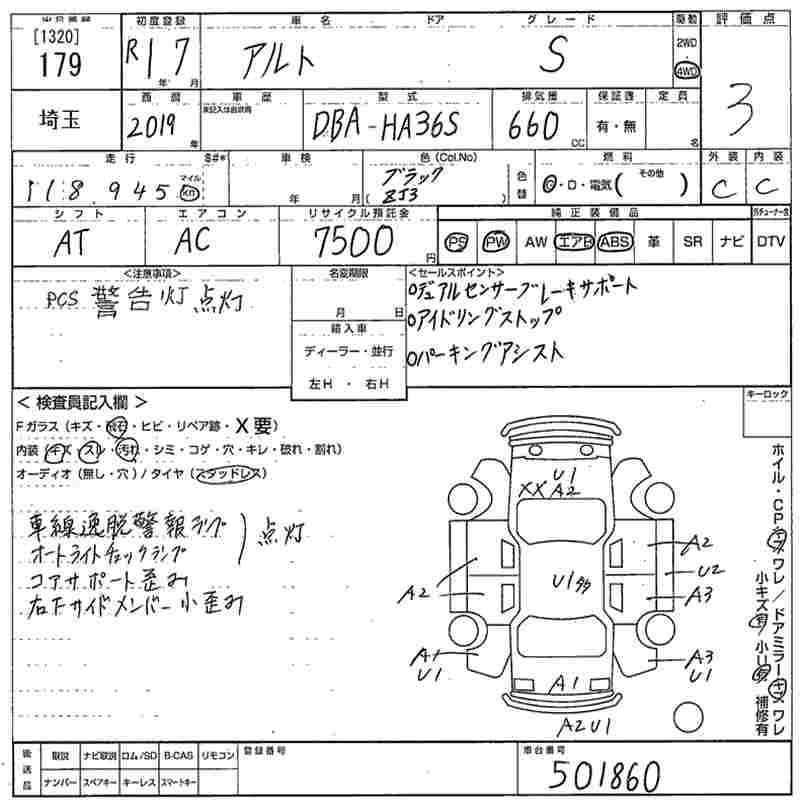 出品番号 初度登録 車名 ドア グレード 駆動 評価点
[1320] 179 R1 7 年 月 アルト S 2WD 4WD 3
埼玉 西暦 車歴 型式 排気量 保証書 定員
未記入は自家用
2019 年 DBA-HA36S 660 CC 有・無 名
走行 $#* 車検 色(Col.No) 燃料 その他 外装 内装
118,945 マイル km 年 月 ブラック (ZJ3 ) 色替 G・D・電気( ) C C
シフト エアコン リサイクル預託金 純正装備品
AT AC 7500 円 PS PW AW エアB ABS 革 SR ナビ DTV
<注意事項> 名変期限 <セールスポイント>
PCS 警告灯点灯 月 日 ○デュアルセンサーブレーキサポート
輸入車 ○アイドリングストップ
ディーラー・並行 ○パーキングアシスト
左H・右H
< 検査員記入欄 > キーロック
Fガラス(キズ・飛石・ヒビ・リペア跡・X要)
内装(キズ・スレ・汚れ・シミ・コゲ・穴・キレ・破れ・割れ)
オーディオ(無し・穴)/タイヤ(スタッドレス)
車線逸脱警報ランプ
オートライトチェックランプ ) 点灯
コアサポート歪み
右下サイドメンバー小歪み
U1
XX A2
A2
U2
A2 U1多 A3
A1 U1 A3 U1
A1
A2U1
ホイル・CPキズワレ/ドアミラーキズワレ
小キズ有 小U有 補修有
後送品 取説 ナビ取説 ロム/SD B-CAS リモコン 登録番号 車台番号
ナンバー スペアキー キーレス スマートキー 501860